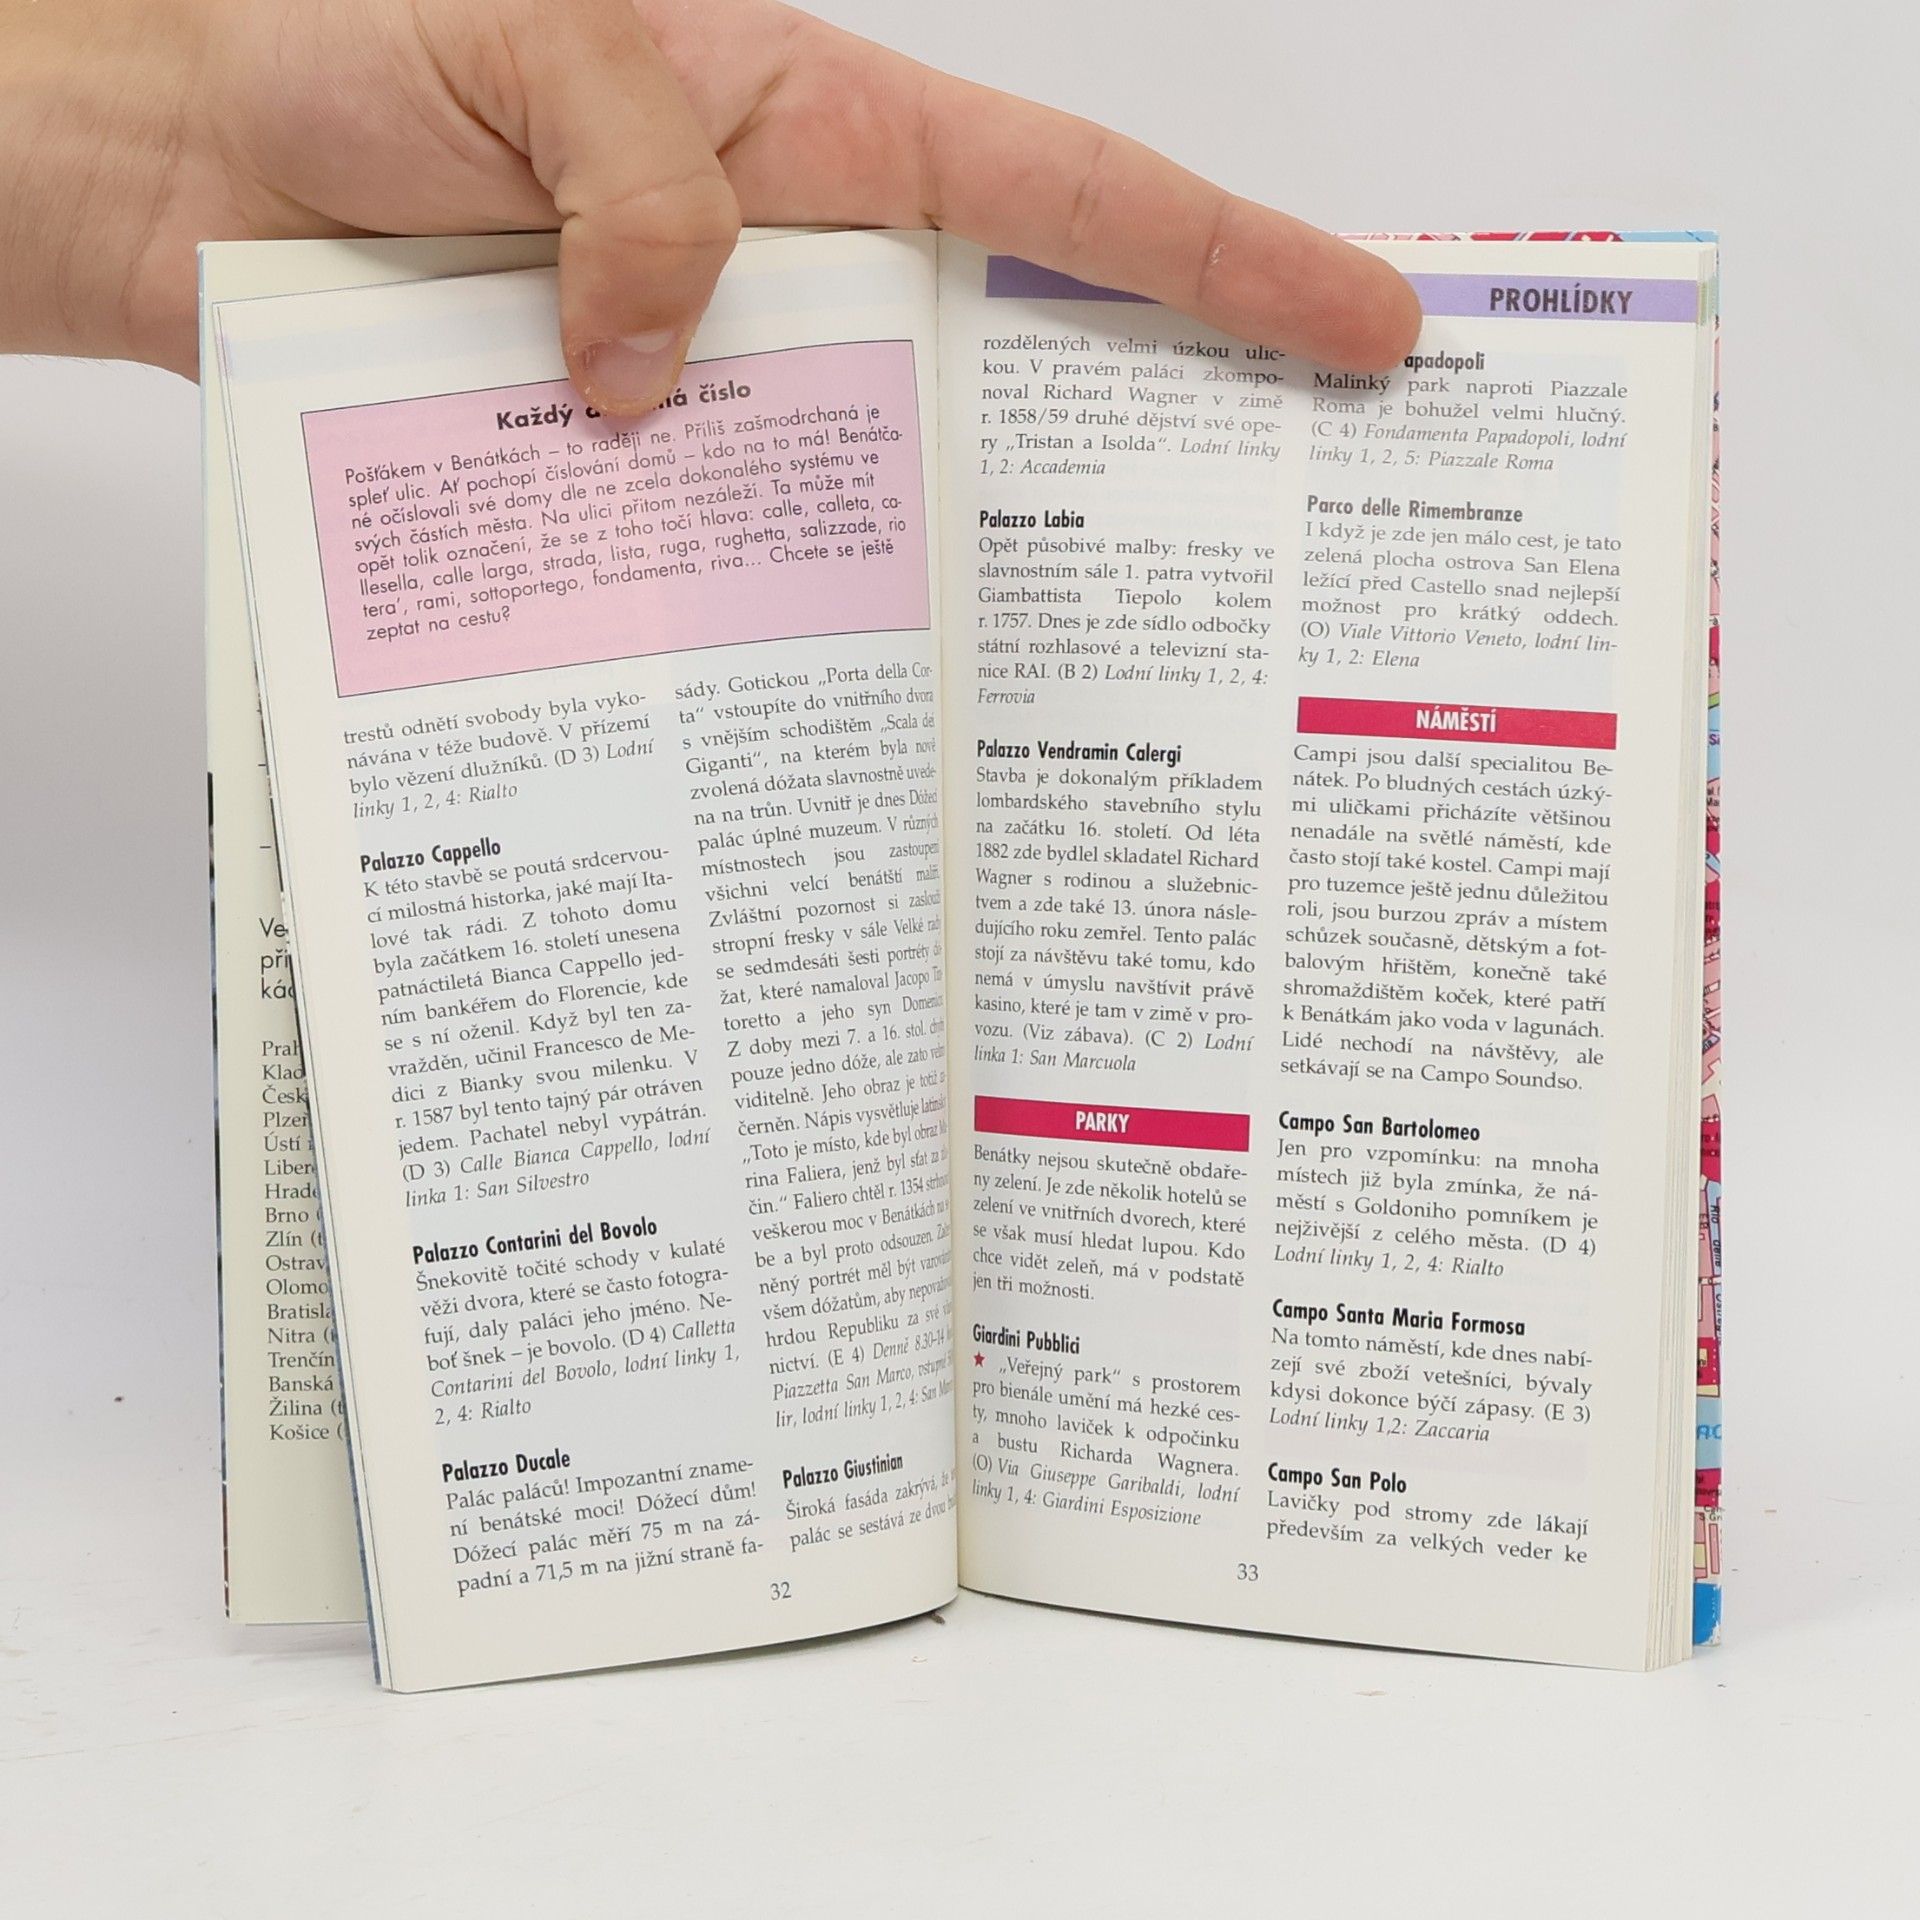 Každý má číslo
Pošťákem v Benátkách – to raději ne. Příliš zašmodrchaná je
spleť ulic. Ať pochopí číslování domů – kdo na to má! Benátča-
né očíslovali své domy dle ne zcela dokonalého systému ve
svých částích města. Na ulici přitom nezáleží. Ta může mít
opět tolik označení, že se z toho točí hlava: calle, calleta, ca-
llesella, calle larga, strada, lista, ruga, rughetta, salizzade, rio
tera’, rami, sottoportego, fondamenta, riva... Chcete se ještě
zeptat na cestu?
trestů odnětí svobody byla vyko-
návána v téže budově. V přízemí
bylo vězení dlužníků. (D 3) Lodní
linky 1, 2, 4: Rialto
Palazzo Cappello
K této stavbě se poutá srdcervou-
cí milostná historka, jaké mají Ita-
lové tak rádi. Z tohoto domu
byla začátkem 16. století unesena
patnáctiletá Bianca Cappello jed-
ním bankéřem do Florencie, kde
se s ní oženil. Když byl ten za-
vražděn, učinil Francesco de Me-
dici z Bianky svou milenku. V
r. 1587 byl tento tajný pár otráven
jedem. Pachatel nebyl vypátrán.
(D 3) Calle Bianca Cappello, lodní
linka 1: San Silvestro
Palazzo Contarini del Bovolo
Šnekovitě točité schody v kulaté
věži dvora, které se často fotogra-
fují, daly paláci jeho jméno. Ne-
boť šnek – je bovolo. (D 4) Calletta
Contarini del Bovolo, lodní linky 1,
2, 4: Rialto
Palazzo Ducale
Palác paláců! Impozantní zname-
ní benátské moci! Dóžecí dům!
Dóžecí palác měří 75 m na zá-
padní a 71,5 m na jižní straně fa-
sády. Gotickou „Porta della Car-
ta“ vstoupíte do vnitřního dvora
s vnějším schodištěm „Scala dei
Giganti“, na kterém byla nově
zvolená dóžata slavnostně uvede-
na na trůn. Uvnitř je dnes Dóžecí
palác úplné muzeum. V různých
místnostech jsou zastoupeni
všichni velcí benátští malíři.
Zvláštní pozornost si zaslouží
stropní fresky v sále Velké rady
se sedmdesáti šesti portréty dó-
žat, které namaloval Jacopo Tin-
toretto a jeho syn Domenico.
Z doby mezi 7. a 16. stol. chybí
pouze jedno dóže, ale zato velmi
viditelně. Jeho obraz je totiž za-
černěn. Nápis vysvětluje latinsky:
„Toto je místo, kde byl obraz Ma-
rina Faliera, jenž byl sťat za zlo-
čin.“ Faliero chtěl r. 1354 strhnout
veškerou moc v Benátkách na se-
be a byl proto odsouzen. Začer-
něný portrét měl být varováním
všem dóžatům, aby nepovažovali
hrdou Republiku za své vlast-
nictví. (E 4) Denně 8.30–14 h,
Piazzetta San Marco, vstupné
lir, lodní linky 1, 2, 4: San Marco
Palazzo Giustinian
Široká fasáda zakrývá, že
palác se sestává ze dvou
32
PROHLÍDKY
rozdělených velmi úzkou ulič-
kou. V pravém paláci zkompo-
noval Richard Wagner v zimě
r. 1858/59 druhé dějství své ope-
ry „Tristan a Isolda“. Lodní linky
1, 2: Accademia
Palazzo Labia
Opět působivé malby: fresky ve
slavnostním sále 1. patra vytvořil
Giambattista Tiepolo kolem
r. 1757. Dnes je zde sídlo odbočky
státní rozhlasové a televizní sta-
nice RAI. (B 2) Lodní linky 1, 2, 4:
Ferrovia
Palazzo Vendramin Calergi
Stavba je dokonalým příkladem
lombardského stavebního stylu
na začátku 16. století. Od léta
1882 zde bydlel skladatel Richard
Wagner s rodinou a služebnic-
tvem a zde také 13. února násle-
dujícího roku zemřel. Tento palác
stojí za návštěvu také tomu, kdo
nemá v úmyslu navštívit právě
kasino, které je tam v zimě v pro-
vozu. (Viz zábava). (C 2) Lodní
linka 1: San Marcuola
PARKY
Benátky nejsou skutečně obdaře-
ny zelení. Je zde několik hotelů se
zelení ve vnitřních dvorech, které
se však musí hledat lupou. Kdo
chce vidět zeleň, má v podstatě
jen tři možnosti.
Giardini Pubblici
★ „Veřejný park“ s prostorem
pro bienále umění má hezké ces-
ty, mnoho laviček k odpočinku
a bustu Richarda Wagnera.
(O) Via Giuseppe Garibaldi, lodní
linky 1, 4: Giardini Esposizione
apadopoli
Malinký park naproti Piazzale
Roma je bohužel velmi hlučný.
(C 4) Fondamenta Papadopoli, lodní
linky 1, 2, 5: Piazzale Roma
Parco delle Rimembranze
I když je zde jen málo cest, je tato
zelená plocha ostrova San Elena
ležící před Castello snad nejlepší
možnost pro krátký oddech.
(O) Viale Vittorio Veneto, lodní lin-
ky 1, 2: Elena
NÁMĚSTÍ
Campi jsou další specialitou Be-
nátek. Po bludných cestách úzký-
mi uličkami přicházíte většinou
nenadále na světlé náměstí, kde
často stojí také kostel. Campi mají
pro tuzemce ještě jednu důležitou
roli, jsou burzou zpráv a místem
schůzek současně, dětským a fot-
balovým hřištěm, konečně také
shromaždištěm koček, které patří
k Benátkám jako voda v lagunách.
Lidé nechodí na návštěvy, ale
setkávají se na Campo Soundso.
Campo San Bartolomeo
Jen pro vzpomínku: na mnoha
místech již byla zmínka, že ná-
městí s Goldoniho pomníkem je
nejživější z celého města. (D 4)
Lodní linky 1, 2, 4: Rialto
Campo Santa Maria Formosa
Na tomto náměstí, kde dnes nabí-
zejí své zboží vetešníci, bývaly
kdysi dokonce býčí zápasy. (E 3)
Lodní linky 1,2: Zaccaria
Campo San Polo
Lavičky pod stromy zde lákají
především za velkých veder ke
33
Ve
při
kác
Prah
Klad
Česk
Plzeň
Ústí
Liber
Hrade
Brno (
Zlín (t
Ostrav
Olomo
Bratisla
Nitra (
Trenčín
Banská
Žilina (t
Košice (